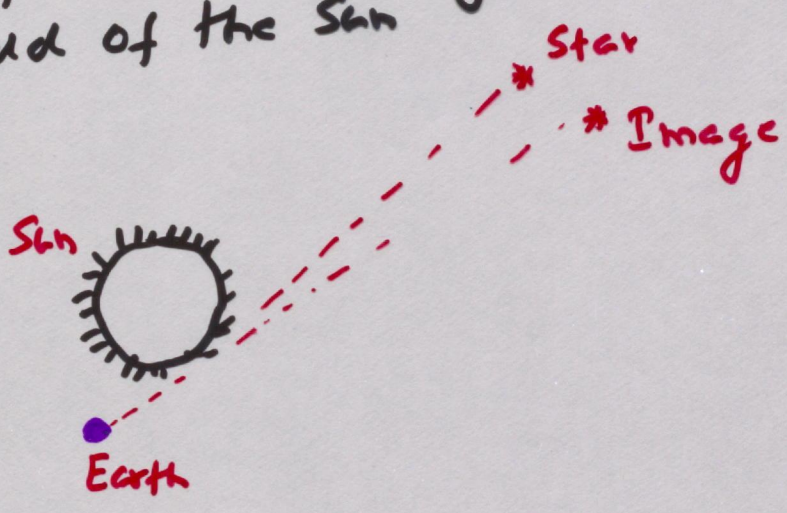 of the Sun
Star
Image
Sun
Earth